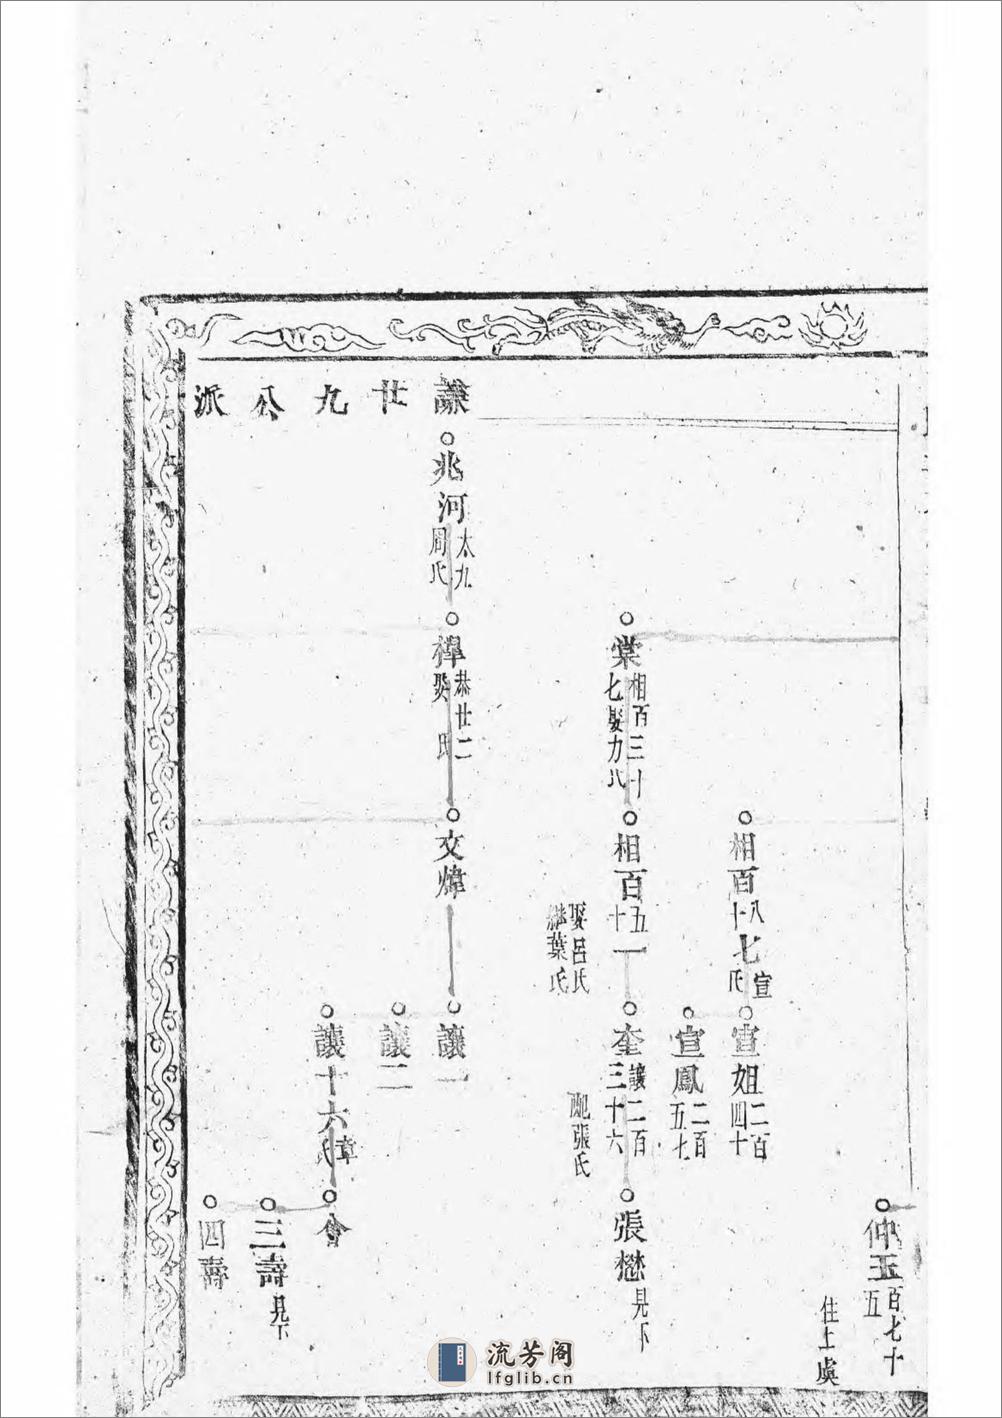 仲玉 百七十五
住上虞
相百八十七 宣氏
宣姐 二百四十
宣鳳 二百五七
棠 相百三十七 娶力氏
相百五十一
娶呂氏
繼葉氏
奎 讓二百三十六
配張氏
張懋 見下
謙廿九公派
兆河 太九 周氏
樨 恭廿二 氏
文煒
讓一
讓二
讓十六 章氏
會
三壽 見下
四壽
流芳阁
lfglib.cn